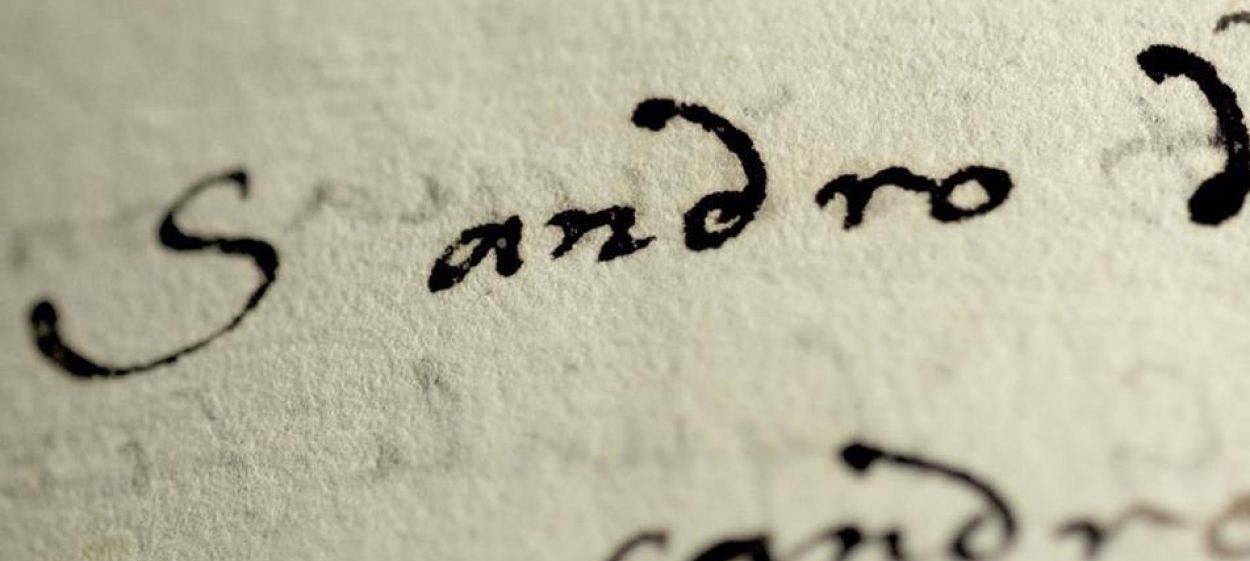 Sandro d
sandro